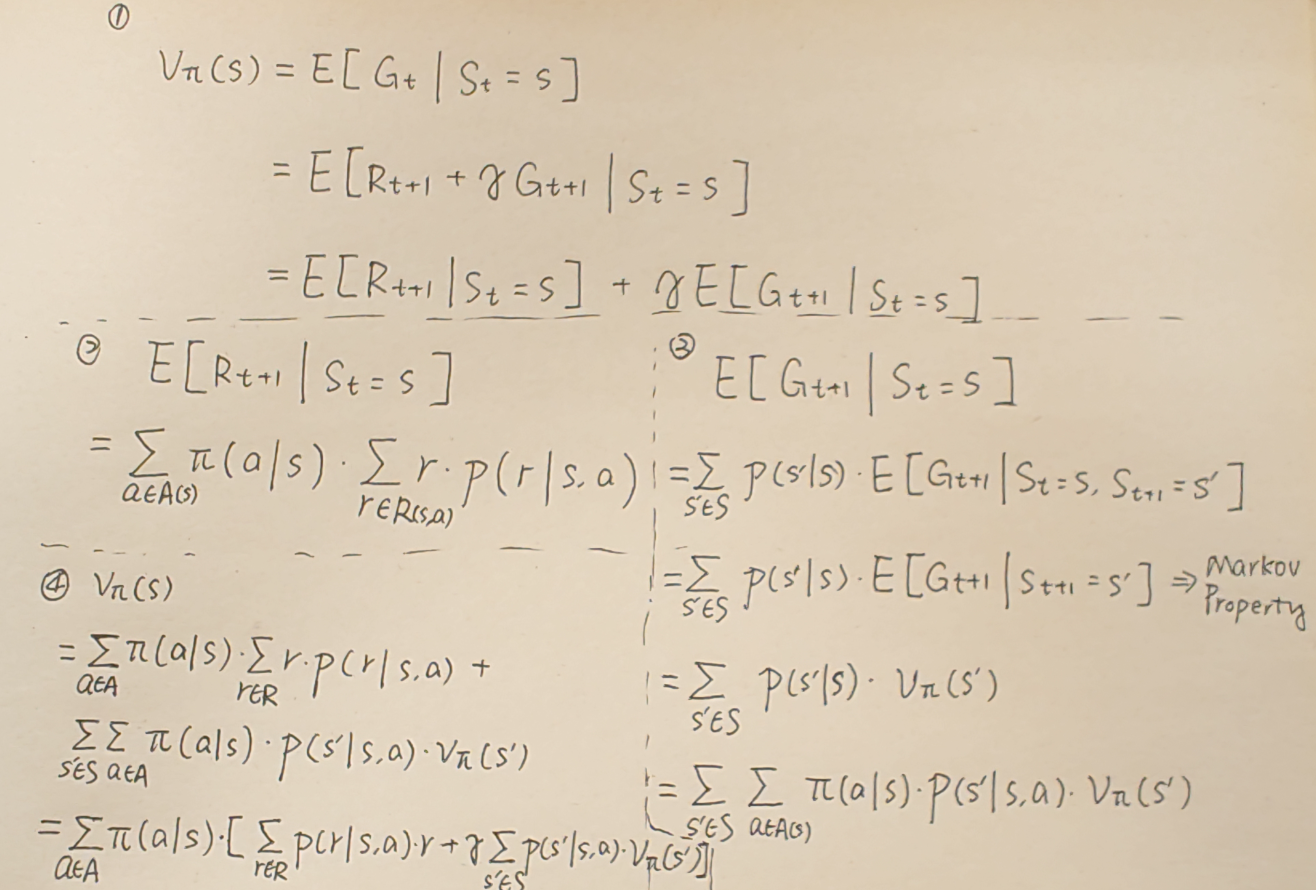 ①
Vπ(s) = E[Gt | St = s]
= E[Rt+1 + γGt+1 | St = s]
= E[Rt+1 | St = s] + γE[Gt+1 | St = s]
② E[Rt+1 | St = s]
= Σ a∈A(s) π(a|s) · Σ r∈R(s,a) r · p(r|s,a)
③ E[Gt+1 | St = s]
= Σ s'∈S p(s'|s) · E[Gt+1 | St = s, St+1 = s']
= Σ s'∈S p(s'|s) · E[Gt+1 | St+1 = s'] ⇒ Markov Property
= Σ s'∈S p(s'|s) · Vπ(s')
= Σ s'∈S Σ a∈A(s) π(a|s) · p(s'|s,a) · Vπ(s')
④ Vπ(s)
= Σ a∈A π(a|s) · Σ r∈R r · p(r|s,a) +
Σ s'∈S Σ a∈A π(a|s) · p(s'|s,a) · Vπ(s')
= Σ a∈A π(a|s) · [Σ r∈R p(r|s,a) · r + γ Σ s'∈S p(s'|s,a) · Vπ(s')]